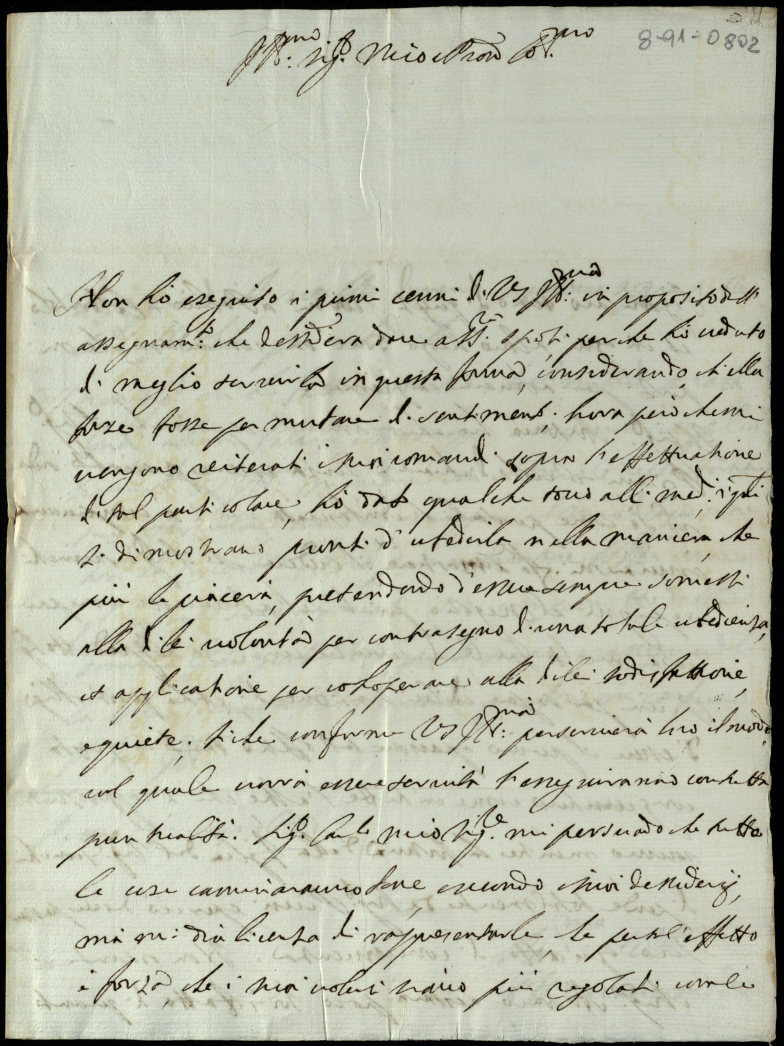 8-91-0802
Ill.mo Sig.r mio e Pron Col.mo
Non hò eseguito i primi cenni di VS Ill.ma in proposito dell
assegnam.to che desidera dare a SS.ri sposi perche hò creduto
di meglio servirla in questa forma, considerando, ch'ella
forze fosse per mutare di sentimento. hora però che mi
vengono reiterati i suoi comandi sopra l'effettuatione
di tal particolare, hò dato qualche tocco alli med.i i quali
si dimostrano pronti d'ubedirla nella maniera, che
più le piacerà, pretendendo d'esser sempre somessi
alla di lei volontà per contrasegno di una totale ubedienza,
et applicatione per cooperare alla di lei sodisfattione,
e quiete. si che conforme VS Ill.ma perscriverà loro il modo,
col quale vorrà essere servita l'esseguiranno con tutta
puntualità. Sig.r Carlo mio Sig.re mi persuado che tutte
le cose caminaranno bene secondo i suoi desiderij,
ma mi dia licenza di rappresentarle, che per tal effetto
è forza, che i suoi voleri siano più regolati con le